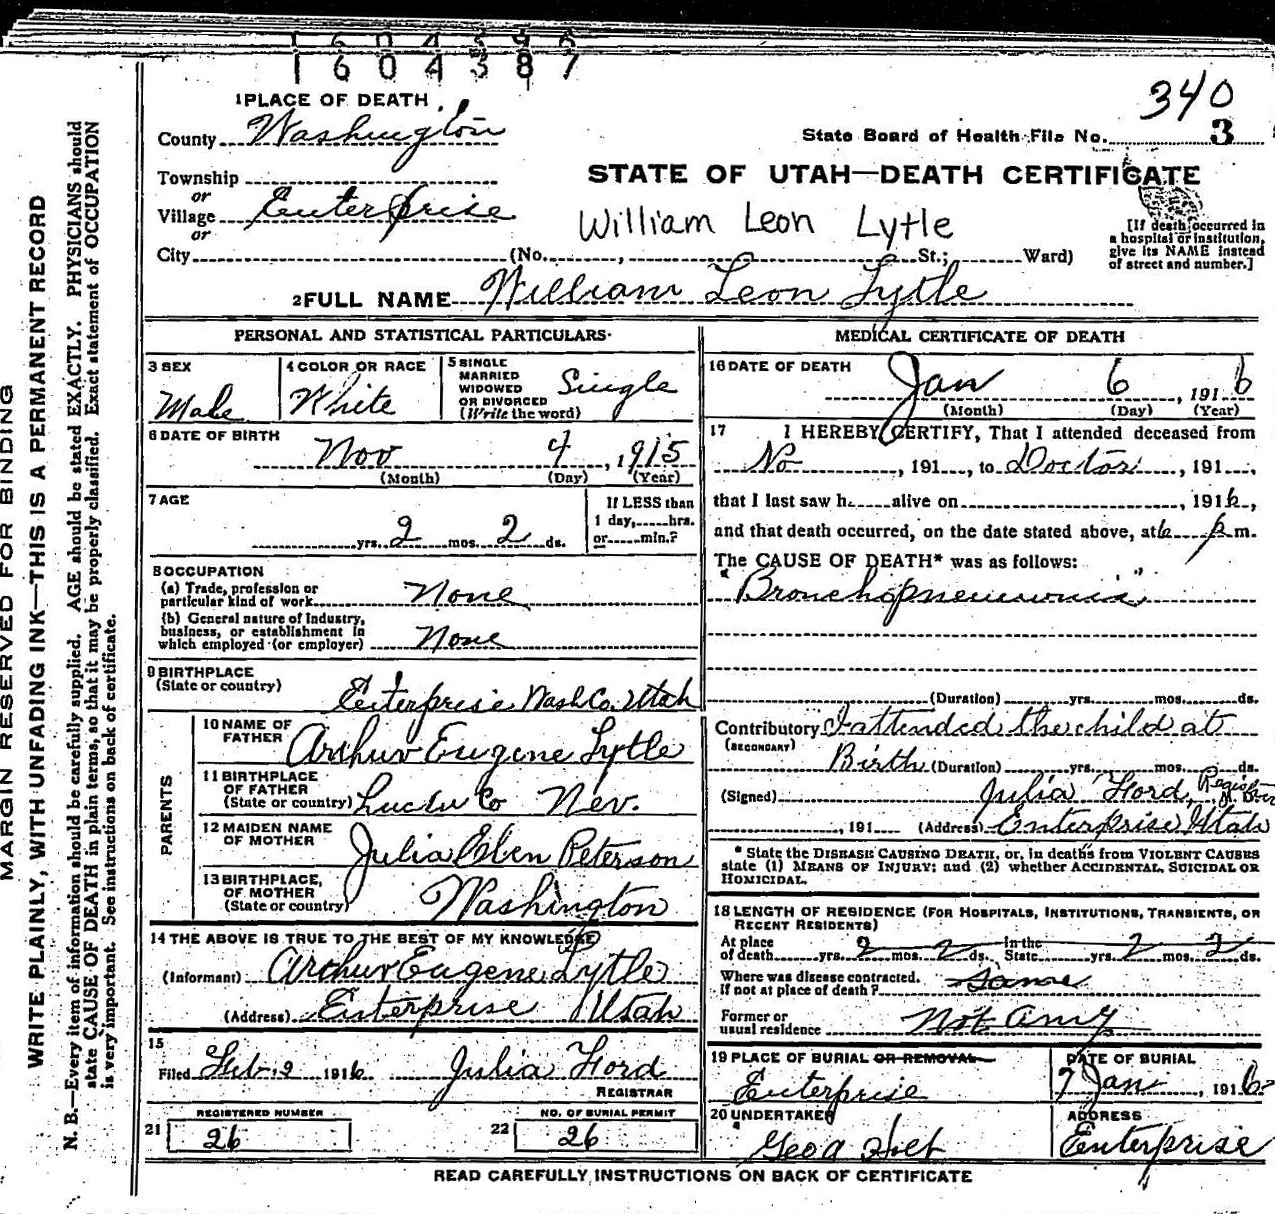 1604387
340
3
1 PLACE OF DEATH
County Washington
State Board of Health File No.
Township
or
Village Enterprise
or
City (No. , St.; Ward)
STATE OF UTAH—DEATH CERTIFICATE
William Leon Lytle
[If death occurred in
a hospital or institution,
give its NAME instead
of street and number.]
2 FULL NAME William Leon Lytle
PERSONAL AND STATISTICAL PARTICULARS
3 SEX
Male
4 COLOR OR RACE
White
5 SINGLE
MARRIED
WIDOWED
OR DIVORCED
(Write the word)
Single
6 DATE OF BIRTH
Nov 4, 1915
(Month) (Day) (Year)
7 AGE
yrs. 2 mos. 2 ds.
If LESS than
1 day, hrs.
or min.?
8 OCCUPATION
(a) Trade, profession or
particular kind of work None
(b) General nature of Industry,
business, or establishment in
which employed (or employer) None
9 BIRTHPLACE
(State or country)
Enterprise Wash Co. Utah
PARENTS
10 NAME OF
FATHER
Arthur Eugene Lytle
11 BIRTHPLACE
OF FATHER
(State or country) Co Nev.
12 MAIDEN NAME
OF MOTHER
Julia Peterson
13 BIRTHPLACE,
OF MOTHER
(State or country)
Washington
14 THE ABOVE IS TRUE TO THE BEST OF MY KNOWLEDGE
(Informant) Arthur Eugene Lytle
(Address) Enterprise Utah
15
Filed Feb 2 1916 Julia Ford
REGISTRAR
REGISTERED NUMBER
21 26
NO. OF BURIAL PERMIT
22 26
MEDICAL CERTIFICATE OF DEATH
16 DATE OF DEATH
Jan 6, 1916
(Month) (Day) (Year)
17 I HEREBY CERTIFY, That I attended deceased from
No, 191 , to Doctor, 191 ,
that I last saw h alive on , 1916,
and that death occurred, on the date stated above, at 6 p m.
The CAUSE OF DEATH* was as follows:
"Bronchopneumonia"
(Duration) yrs. mos. ds.
Contributory I attended the child at
(SECONDARY)
Birth (Duration) yrs. mos. ds.
(Signed) Julia Ford, Registrar M. D.
, 191 (Address) Enterprise Utah
* State the DISEASE CAUSING DEATH, or, in deaths from VIOLENT CAUSES
state (1) MEANS OF INJURY; and (2) whether ACCIDENTAL, SUICIDAL OR
HOMICIDAL.
18 LENGTH OF RESIDENCE (FOR HOSPITALS, INSTITUTIONS, TRANSIENTS, OR
RECENT RESIDENTS)
At place
of death yrs. 2 mos. 2 ds.
In the
State yrs. 2 mos. 2 ds.
Where was disease contracted.
If not at place of death? Same
Former or
usual residence Not any
19 PLACE OF BURIAL OR REMOVAL
Enterprise
DATE OF BURIAL
7 Jan, 1916
20 UNDERTAKER
Geo A Holt
ADDRESS
Enterprise
READ CAREFULLY INSTRUCTIONS ON BACK OF CERTIFICATE
MARGIN RESERVED FOR BINDING
WRITE PLAINLY, WITH UNFADING INK—THIS IS A PERMANENT RECORD
N. B.—Every item of information should be carefully supplied. AGE should be stated EXACTLY. PHYSICIANS should
state CAUSE OF DEATH in plain terms, so that it may be properly classified. Exact statement of OCCUPATION
is very important. See instructions on back of certificate.